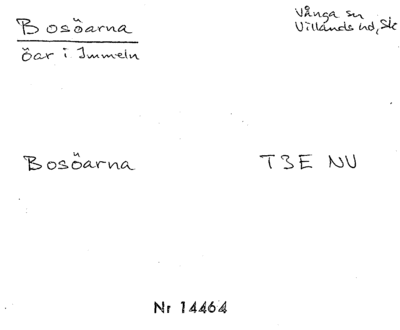 Bosöarna
Vånga sn
Villands hd, Sk
öar i Immeln
Bosöarna
T3E NV
Nr 14464